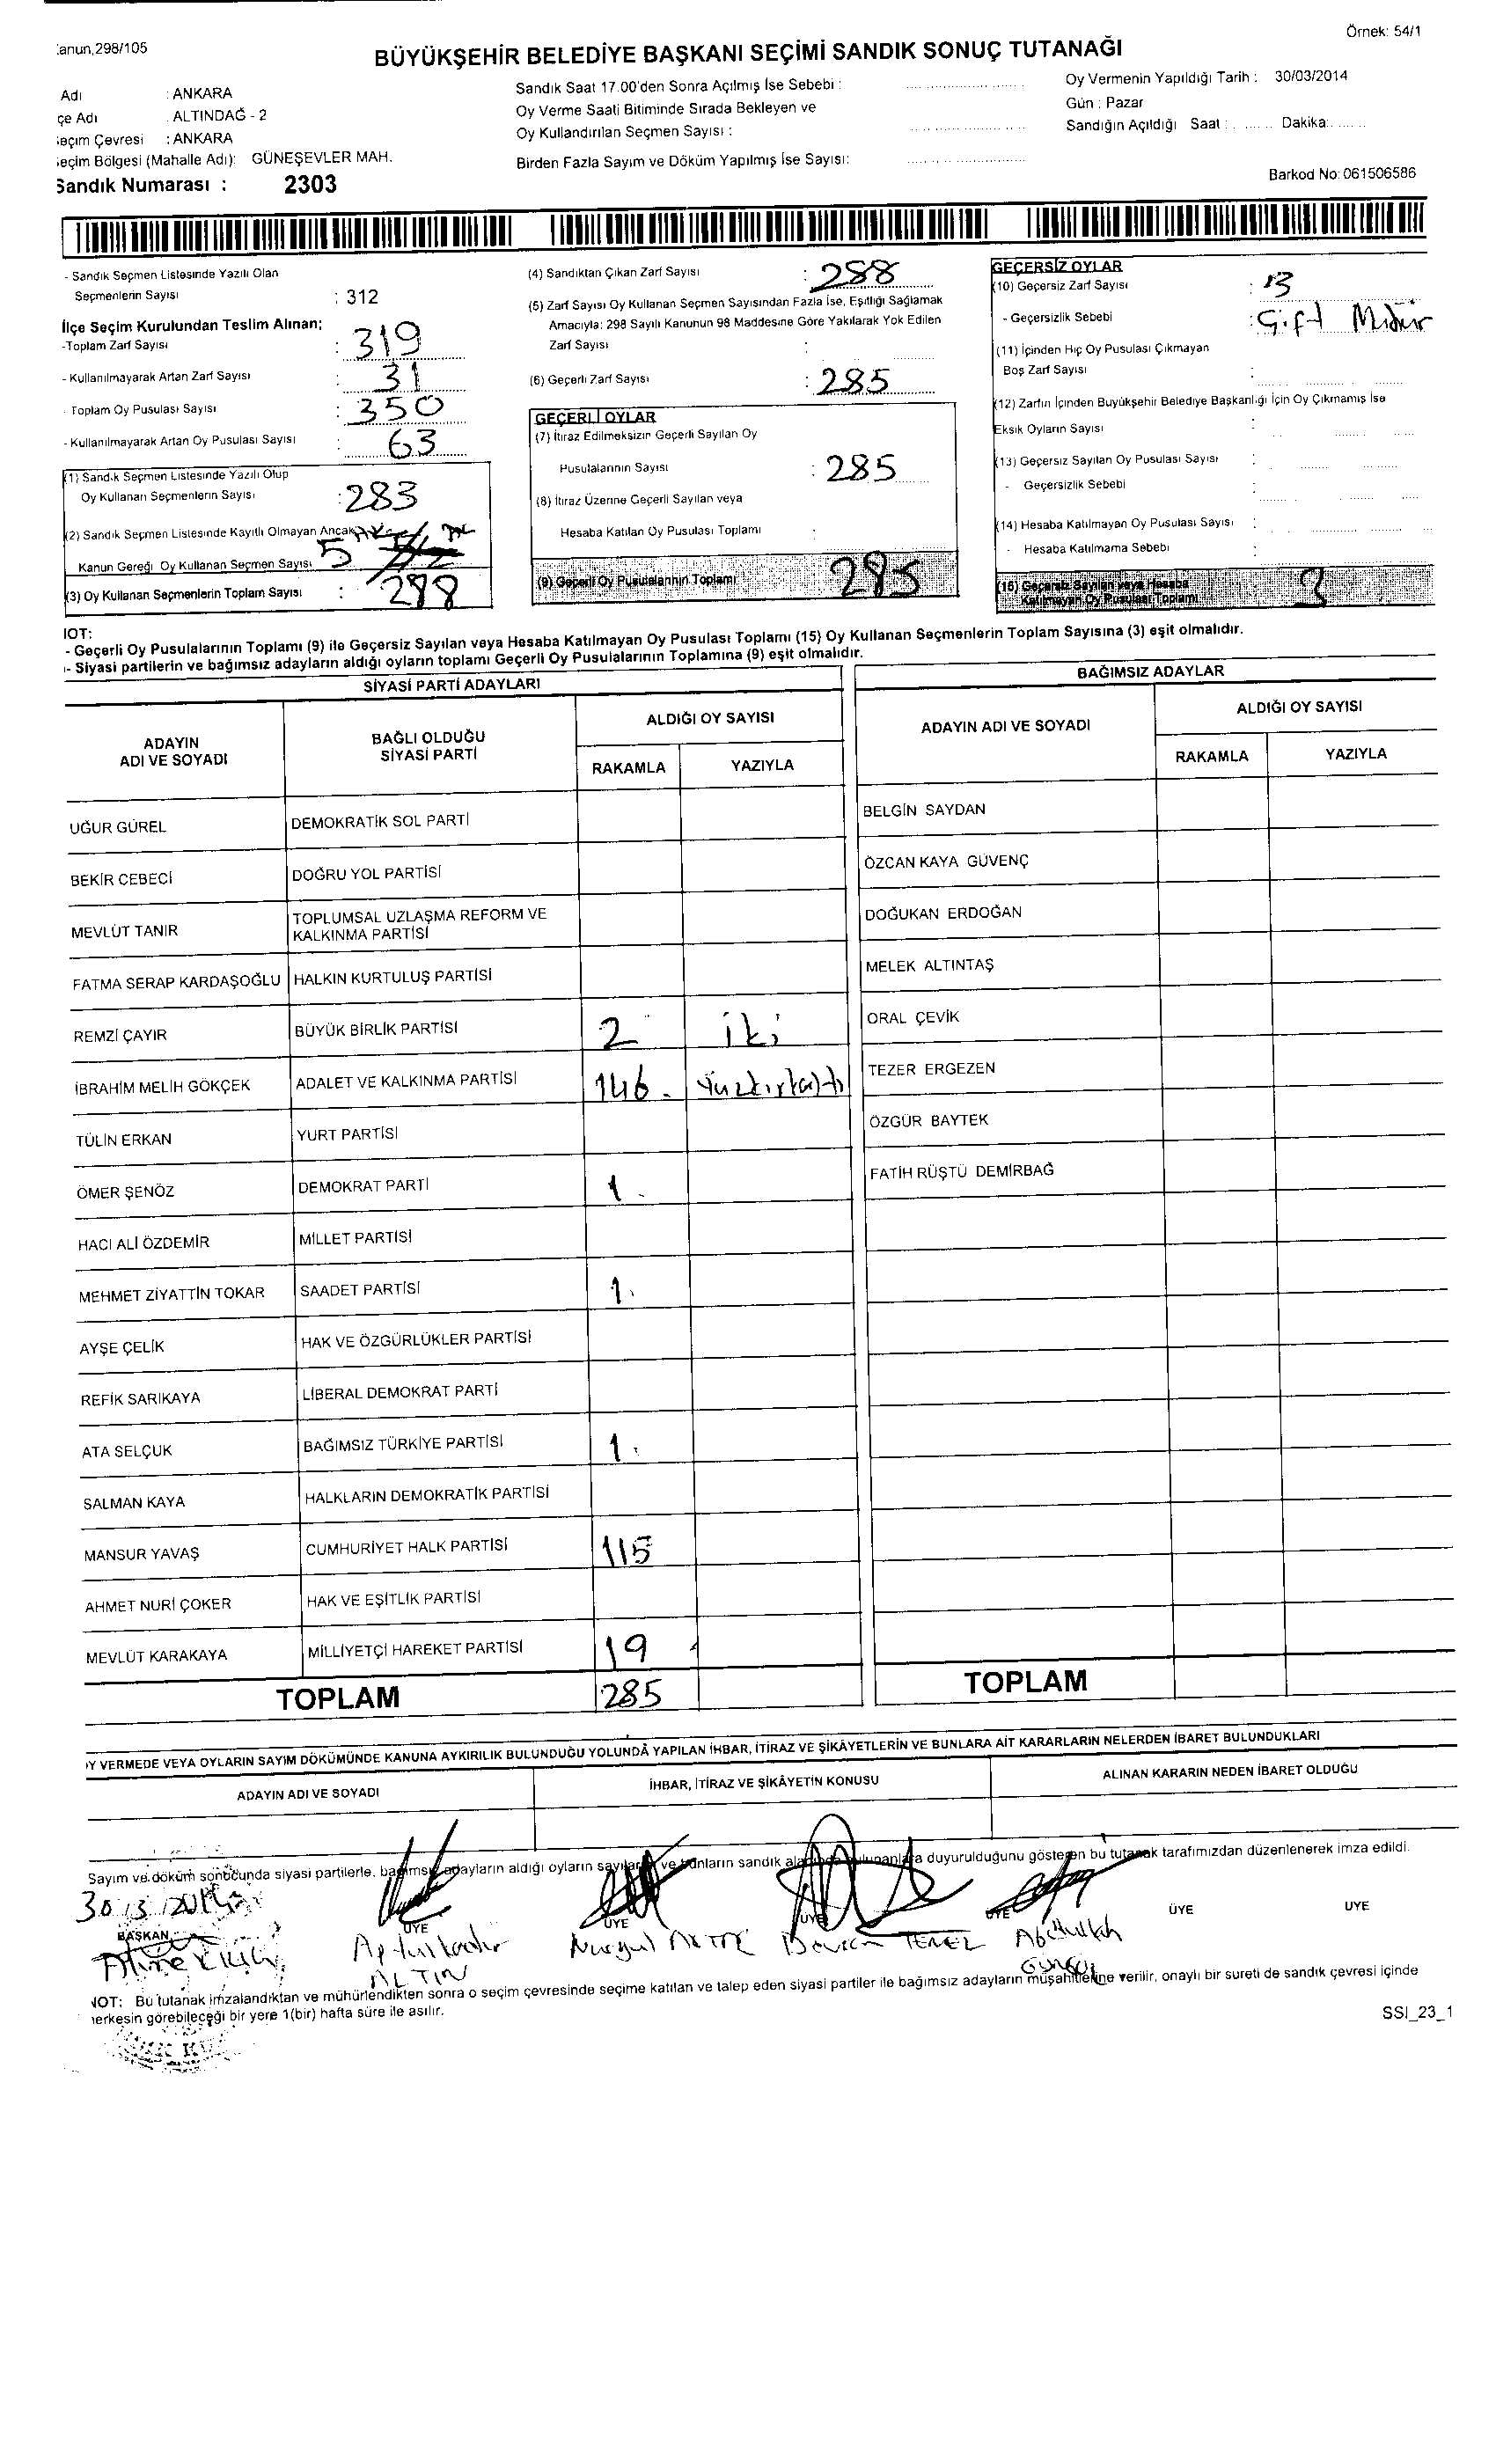 anun,298/105
Örnek: 54/1
BÜYÜKŞEHİR BELEDİYE BAŞKANI SEÇİMİ SANDIK SONUÇ TUTANAĞI
Adı : ANKARA
çe Adı : ALTINDAĞ - 2
eçim Çevresi : ANKARA
eçim Bölgesi (Mahalle Adı): GÜNEŞEVLER MAH.
Sandık Numarası : 2303
Sandık Saat 17.00'den Sonra Açılmış İse Sebebi :
Oy Verme Saati Bitiminde Sırada Bekleyen ve
Oy Kullandırılan Seçmen Sayısı :
Birden Fazla Sayım ve Döküm Yapılmış İse Sayısı:
Oy Vermenin Yapıldığı Tarih : 30/03/2014
Gün : Pazar
Sandığın Açıldığı Saat : ........ Dakika: ......
Barkod No: 061506586
- Sandık Seçmen Listesinde Yazılı Olan
Seçmenlerin Sayısı : 312
İlçe Seçim Kurulundan Teslim Alınan;
-Toplam Zarf Sayısı : 319
- Kullanılmayarak Artan Zarf Sayısı : 31
- Toplam Oy Pusulası Sayısı : 350
- Kullanılmayarak Artan Oy Pusulası Sayısı : 63
(1) Sandık Seçmen Listesinde Yazılı Olup
Oy Kullanan Seçmenlerin Sayısı : 283
(2) Sandık Seçmen Listesinde Kayıtlı Olmayan Ancak
Kanun Gereği Oy Kullanan Seçmen Sayısı 5
(3) Oy Kullanan Seçmenlerin Toplam Sayısı : 288
(4) Sandıktan Çıkan Zarf Sayısı : 288
(5) Zarf Sayısı Oy Kullanan Seçmen Sayısından Fazla İse, Eşitliği Sağlamak
Amacıyla: 298 Sayılı Kanunun 98 Maddesine Göre Yakılarak Yok Edilen
Zarf Sayısı :
(6) Geçerli Zarf Sayısı : 285
GEÇERLİ OYLAR
(7) İtiraz Edilmeksizin Geçerli Sayılan Oy
Pusulalarının Sayısı : 285
(8) İtiraz Üzerine Geçerli Sayılan veya
Hesaba Katılan Oy Pusulası Toplamı :
(9) Geçerli Oy Pusulalarının Toplamı 285
GEÇERSİZ OYLAR
(10) Geçersiz Zarf Sayısı : 3
- Geçersizlik Sebebi : Çift Mühür
(11) İçinden Hiç Oy Pusulası Çıkmayan
Boş Zarf Sayısı :
(12) Zarfın İçinden Büyükşehir Belediye Başkanlığı İçin Oy Çıkmamış İse
Eksik Oyların Sayısı :
(13) Geçersiz Sayılan Oy Pusulası Sayısı :
- Geçersizlik Sebebi :
(14) Hesaba Katılmayan Oy Pusulası Sayısı :
- Hesaba Katılmama Sebebi :
(15) Geçersiz Sayılan veya Hesaba
Katılmayan Oy Pusulası Toplamı 3
IOT:
- Geçerli Oy Pusulalarının Toplamı (9) ile Geçersiz Sayılan veya Hesaba Katılmayan Oy Pusulası Toplamı (15) Oy Kullanan Seçmenlerin Toplam Sayısına (3) eşit olmalıdır.
- Siyasi partilerin ve bağımsız adayların aldığı oyların toplamı Geçerli Oy Pusulalarının Toplamına (9) eşit olmalıdır.
SİYASİ PARTİ ADAYLARI
ADAYIN ADI VE SOYADI BAĞLI OLDUĞU SİYASİ PARTİ ALDIĞI OY SAYISI
RAKAMLA YAZIYLA
UĞUR GÜREL DEMOKRATİK SOL PARTİ
BEKİR CEBECİ DOĞRU YOL PARTİSİ
MEVLÜT TANIR TOPLUMSAL UZLAŞMA REFORM VE KALKINMA PARTİSİ
FATMA SERAP KARDAŞOĞLU HALKIN KURTULUŞ PARTİSİ
REMZİ ÇAYIR BÜYÜK BİRLİK PARTİSİ 2 iki
İBRAHİM MELİH GÖKÇEK ADALET VE KALKINMA PARTİSİ 146 Yüzkırkaltı
TÜLİN ERKAN YURT PARTİSİ
ÖMER ŞENÖZ DEMOKRAT PARTİ 1
HACI ALİ ÖZDEMİR MİLLET PARTİSİ
MEHMET ZİYATTİN TOKAR SAADET PARTİSİ 1
AYŞE ÇELİK HAK VE ÖZGÜRLÜKLER PARTİSİ
REFİK SARIKAYA LİBERAL DEMOKRAT PARTİ
ATA SELÇUK BAĞIMSIZ TÜRKİYE PARTİSİ 1
SALMAN KAYA HALKLARIN DEMOKRATİK PARTİSİ
MANSUR YAVAŞ CUMHURİYET HALK PARTİSİ 115
AHMET NURİ ÇOKER HAK VE EŞİTLİK PARTİSİ
MEVLÜT KARAKAYA MİLLİYETÇİ HAREKET PARTİSİ 19
TOPLAM 285
BAĞIMSIZ ADAYLAR
ADAYIN ADI VE SOYADI ALDIĞI OY SAYISI
RAKAMLA YAZIYLA
BELGİN SAYDAN
ÖZCAN KAYA GÜVENÇ
DOĞUKAN ERDOĞAN
MELEK ALTINTAŞ
ORAL ÇEVİK
TEZER ERGEZEN
ÖZGÜR BAYTEK
FATİH RÜŞTÜ DEMİRBAĞ
TOPLAM
Y VERMEDE VEYA OYLARIN SAYIM DÖKÜMÜNDE KANUNA AYKIRILIK BULUNDUĞU YOLUNDA YAPILAN İHBAR, İTİRAZ VE ŞİKÂYETLERİN VE BUNLARA AİT KARARLARIN NELERDEN İBARET BULUNDUKLARI
ADAYIN ADI VE SOYADI İHBAR, İTİRAZ VE ŞİKÂYETİN KONUSU ALINAN KARARIN NEDEN İBARET OLDUĞU
Sayım ve döküm sonucunda siyasi partilerle, bağımsız adayların aldığı oyların sayıları ve bunların sandık alanında bulunanlara duyurulduğunu gösteren bu tutanak tarafımızdan düzenlenerek imza edildi.
30.3.2014
BAŞKAN ÜYE ÜYE ÜYE ÜYE ÜYE ÜYE
ALTIN Devran TEMEL Abdullah
NOT: Bu tutanak imzalandıktan ve mühürlendikten sonra o seçim çevresinde seçime katılan ve talep eden siyasi partiler ile bağımsız adayların müşahitlerine verilir, onaylı bir sureti de sandık çevresi içinde
herkesin görebileceği bir yere 1(bir) hafta süre ile asılır.
SSI_23_1